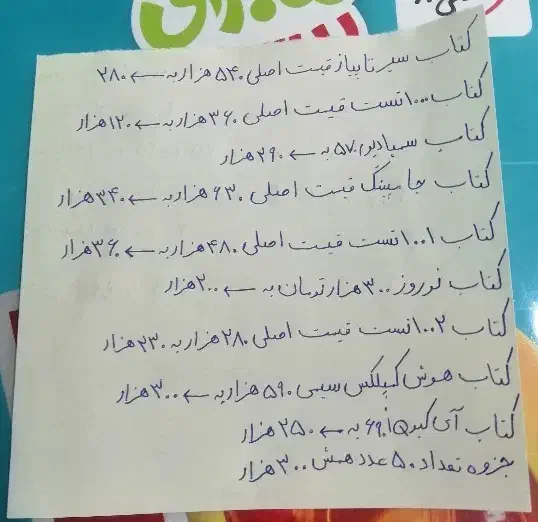 کتاب سیر تا پیاز قیمت اصلی ۵۴۰ هزار به ← ۲۸۰
کتاب ۱۰۰۰ تست قیمت اصلی ۳۶۰ هزار به ← ۱۲۰ هزار
کتاب سمپادیوم ۵۷۰ به ← ۲۹۰ هزار
کتاب جامپینگ قیمت اصلی ۶۳۰ هزار به ← ۳۴۰ هزار
کتاب ۱۰۰۱ تست قیمت اصلی ۴۸۰ هزار به ← ۳۶۰ هزار
کتاب نوروز ۳۰۰ هزار تومان به ← ۲۰۰ هزار
کتاب ۱۰۰۲ تست قیمت اصلی ۲۸۰ هزار به ۲۳۰ هزار
کتاب هوش کمپلکس سیمی ۵۹۰ هزار به ← ۳۰۰ هزار
کتاب آی کیو IQ ۶۹۰ به ← ۲۵۰ هزار
جزوه تعداد ۵۰ عدد همش ۳۰۰ هزار